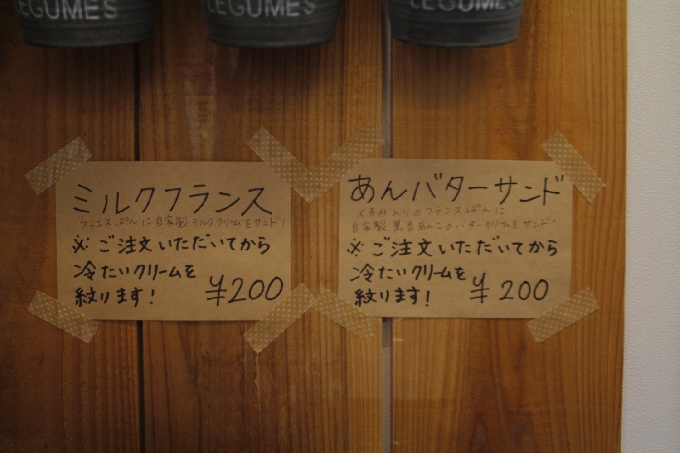 LEGUMES
LEGUMES
LEGUMES
ミルクフランス
フランスぱんに自家製ミルククリームをサンド!
※ご注文いただいてから
冷たいクリームを
絞ります!
¥200
あんバターサンド
くるみ入りのフランスぱんに
自家製黒豆あんこのバタークリームをサンド
※ご注文いただいてから
冷たいクリームを
絞ります!
¥200